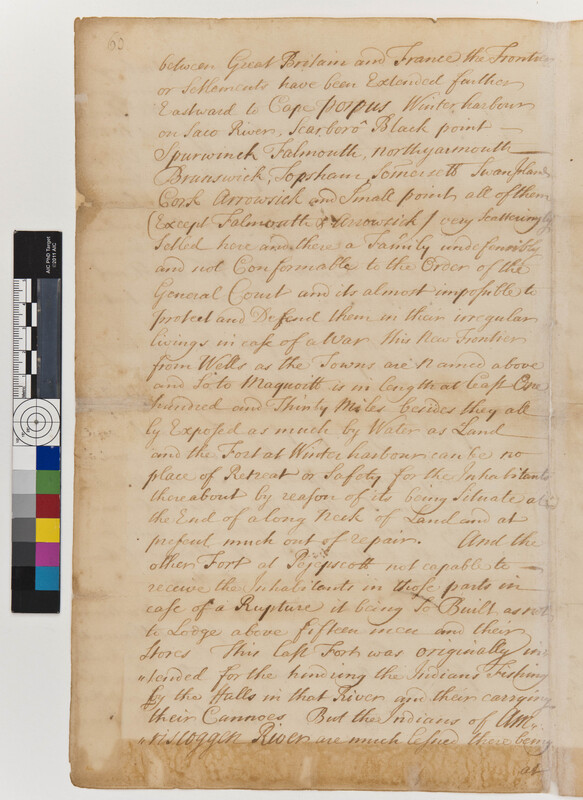 60
between Great Britain and France the Frontier
or Settlements have been Extended further
Eastward to Cape porpus Winterharbour
on Saco River, Scarboro Black point —
Spurwinck Falmouth, northyarmouth —
Brunswick, Topsham, Somersett Swan Island
Cork Arrowsick and Small point all of them
(Except Falmouth & Arrowsick) very Scatteringly
Setled here and there a Family undefensible
and not Conformable to the Order of the
General Court and its almost impossible to
protect and Defend them in their irregular
livings in case of a War this New Frontier
from Wells as the Towns are Named above
and So to Maquoitt is in length at least One
hundred and Thirty Miles besides they all
ly Exposed as much by Water as Land
and the Fort at Winterharbour can be no
place of Retreat or Safety for the Inhabitants
thereabout by reason of its being Situate at
the End of a long Neck of Land and at
present much out of repair. And the
other Fort at Pojepscott not capable to —
receive the Inhabitants in those parts in
case of a Rupture it being So Built as not
to Lodge above fifteen men and their
Stores This last Fort was originally in
"tended for the hindring the Indians Fishing
by the Falls in that River and their carrying
their Cannoes But the Indians of Am"
"riscoggen River are much lessned there being
at